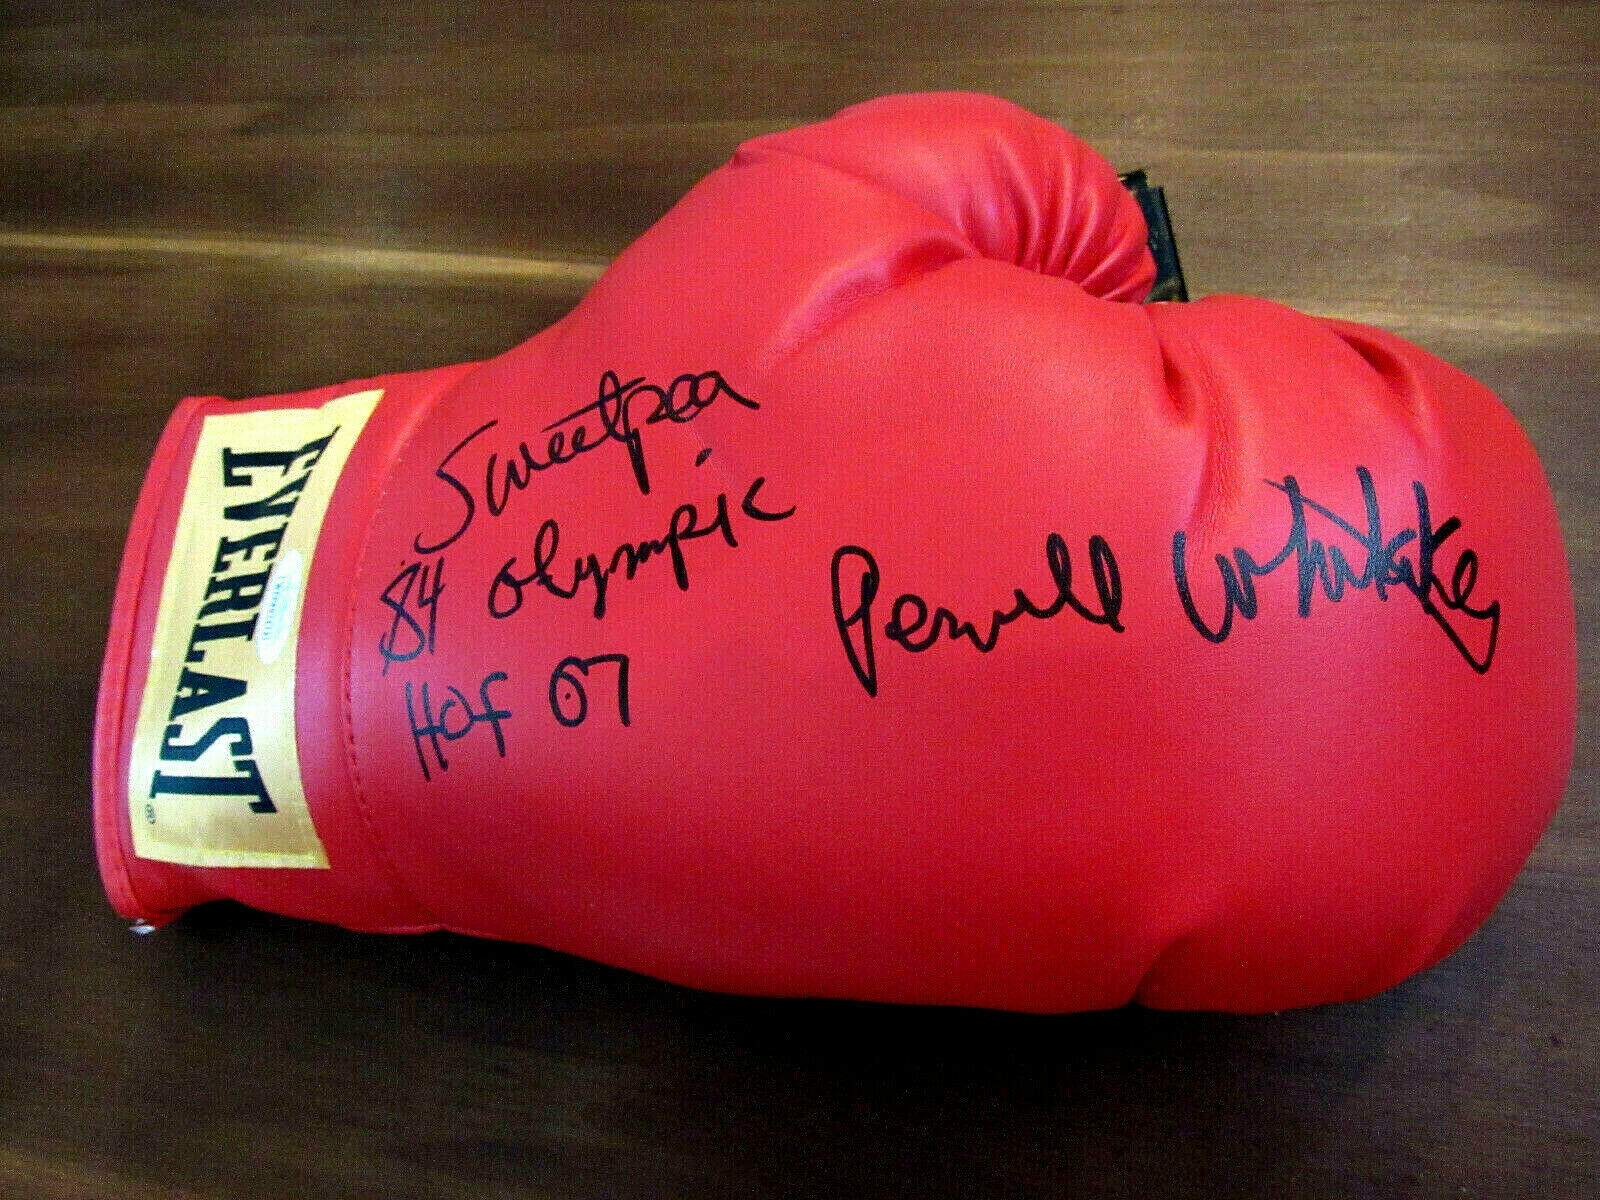 EVERLAST
®
Sweetpea
84 Olympic
HOF 07
Pernell Whitaker